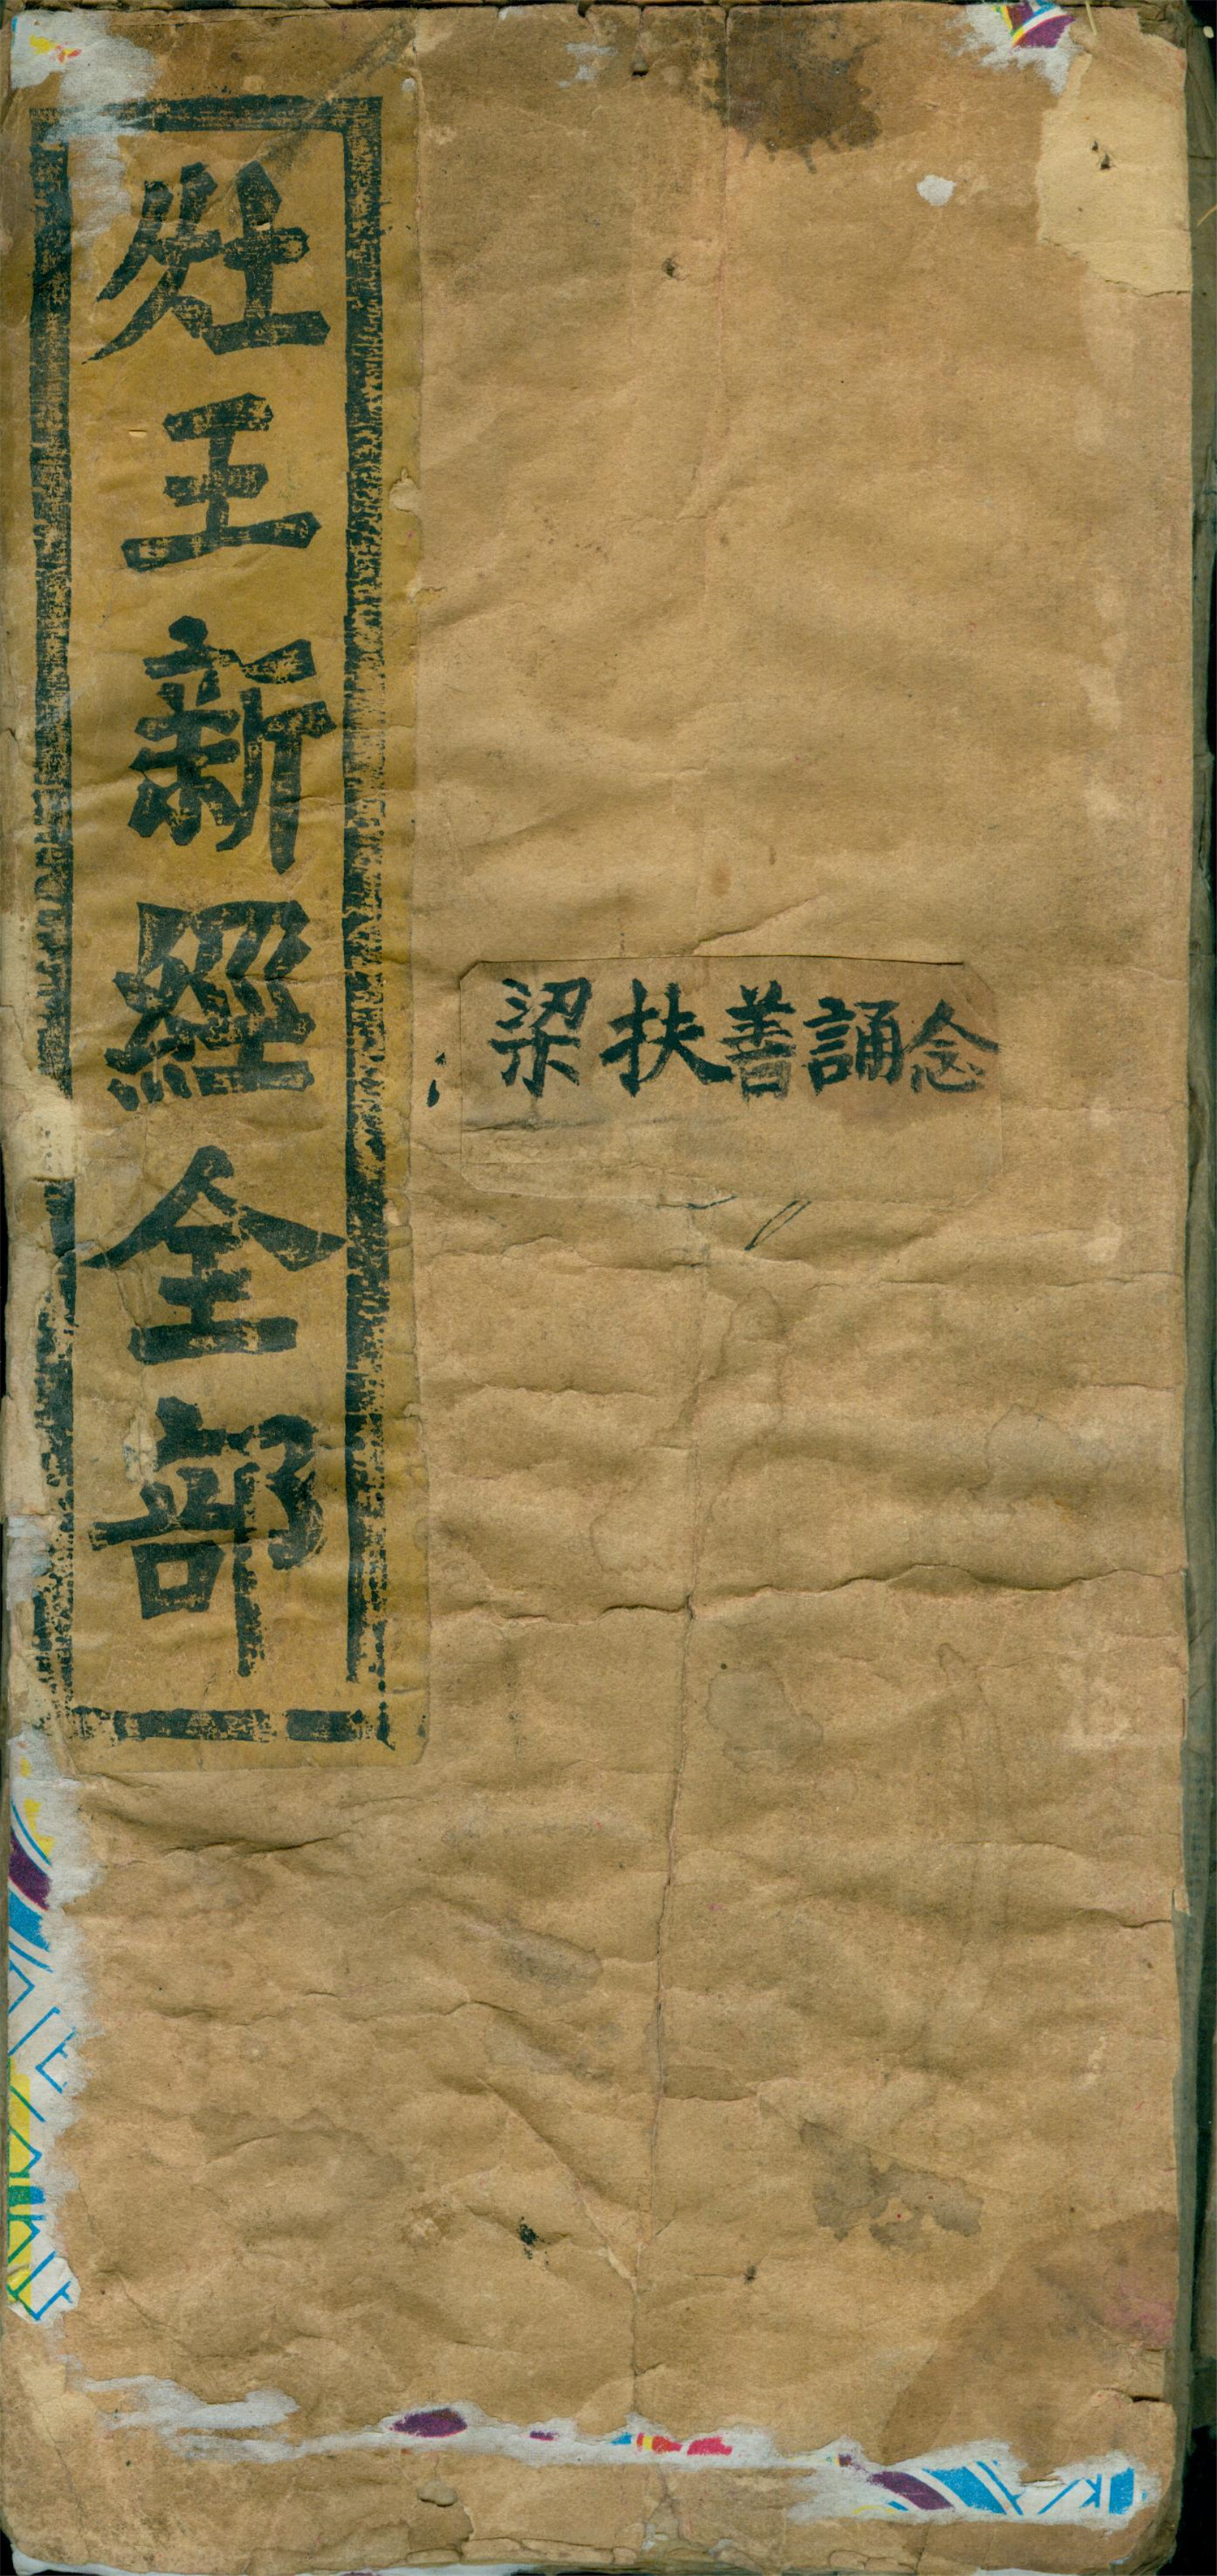 灶王新經全部
梁扶善誦念